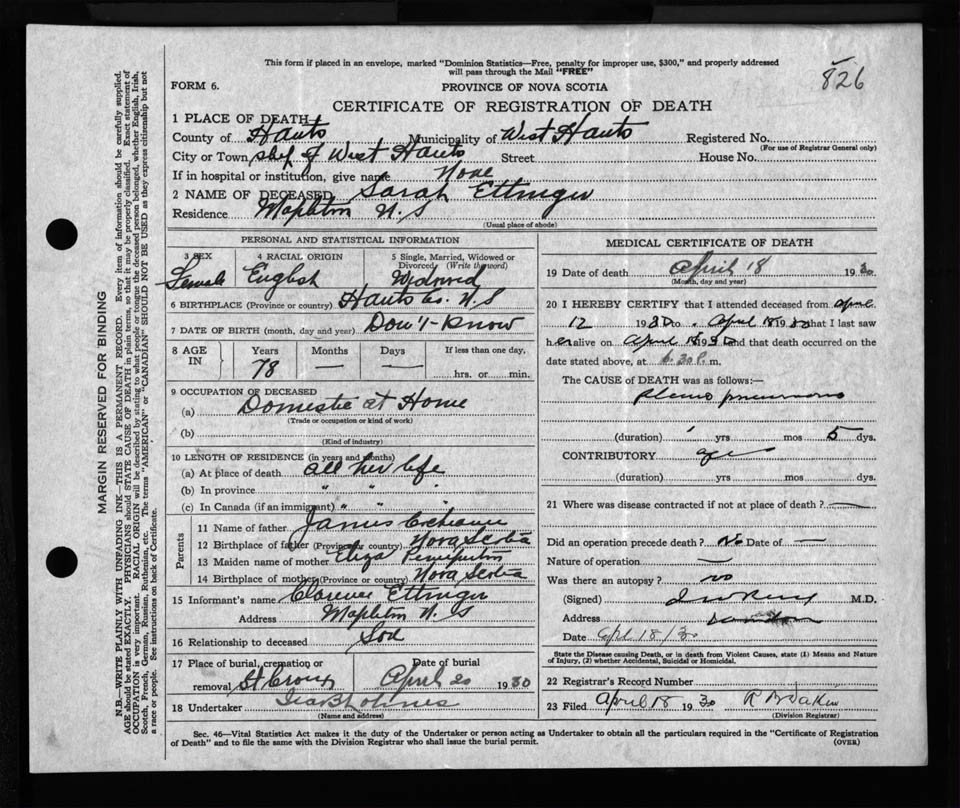 This form if placed in an envelope, marked "Dominion Statistics—Free, penalty for improper use, $300," and properly addressed
will pass through the Mail "FREE"
826
FORM 6.
PROVINCE OF NOVA SCOTIA
CERTIFICATE OF REGISTRATION OF DEATH
1 PLACE OF DEATH
County of Hants Municipality of West Hants Registered No.
(For use of Registrar General only)
City or Town, of West Hants Street House No.
If in hospital or institution, give name None
2 NAME OF DECEASED Sarah Ettinger
Residence Mapleton N. S
(Usual place of abode)
PERSONAL AND STATISTICAL INFORMATION
3 SEX 4 RACIAL ORIGIN 5 Single, Married, Widowed or
Divorced (Write the word)
Female English Widowed
6 BIRTHPLACE (Province or country) Hants Co. N. S
7 DATE OF BIRTH (month, day and year) Don't-Know
8 AGE IN Years Months Days If less than one day,
78 — — hrs. or min.
9 OCCUPATION OF DECEASED
(a) Domestic at Home
(Trade or occupation or kind of work)
(b)
(Kind of industry)
10 LENGTH OF RESIDENCE (in years and months)
(a) At place of death all her life
(b) In province " " "
(c) In Canada (if an immigrant) " " "
Parents
11 Name of father James
12 Birthplace of father (Province or country) Nova Scotia
13 Maiden name of mother Eliza
14 Birthplace of mother (Province or country) Nova Scotia
15 Informant's name Clarence Ettinger
Address Mapleton N. S
16 Relationship to deceased Son
17 Place of burial, cremation or Date of burial
removal St Croix April 20 1930
18 Undertaker
(Name and address)
MEDICAL CERTIFICATE OF DEATH
19 Date of death April 18 1930
(Month, day and year)
20 I HEREBY CERTIFY that I attended deceased from April
12 1930 to April 18 1930 that I last saw
her alive on April 18 1930 and that death occurred on the
date stated above, at 6.30 P. m.
The CAUSE OF DEATH was as follows:—
(duration) yrs mos 5 dys.
CONTRIBUTORY age
(duration) yrs mos dys.
21 Where was disease contracted if not at place of death? —
Did an operation precede death? No Date of —
Nature of operation —
Was there an autopsy? no
(Signed) M.D.
Address
Date Apl 18/30
State the Disease causing Death, or in death from Violent Causes, state (1) Means and Nature
of Injury, (2) whether Accidental, Suicidal or Homicidal.
22 Registrar's Record Number
23 Filed April 18 1930
(Division Registrar)
Sec. 46—Vital Statistics Act makes it the duty of the Undertaker or person acting as Undertaker to obtain all the particulars required in the "Certificate of Registration
of Death" and to file the same with the Division Registrar who shall issue the burial permit.
(OVER)
MARGIN RESERVED FOR BINDING
N.B.—WRITE PLAINLY WITH UNFADING INK—THIS IS A PERMANENT RECORD. Every item of information should be carefully supplied.
AGE should be stated EXACTLY. PHYSICIANS should STATE CAUSE OF DEATH in plain terms, so that it may be properly classified. Exact statement of
OCCUPATION is very important. RACIAL ORIGIN will be described by stating to what people or tongue the deceased person belonged, whether English, Irish,
Scotch, French, German, Russian, Ruthenian, etc. The terms "AMERICAN" or "CANADIAN" SHOULD NOT BE USED as they express citizenship but not
a race or people. See instructions on back of Certificate.